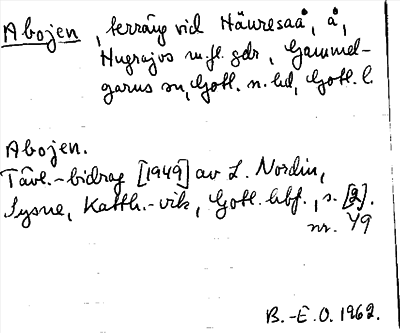 Abojen, terräng vid Häuresaå, å,
Hugrajvs m.fl. gdr, Gammel-
garns sn, Gotl. n. hd, Gotl. l.
Abojen.
Tävl.-bidrag [1949] av L. Nordin,
Sysne, Katth.-vik, Gotl. hbf., s. [2].
nr. 49
B.-E.O. 1962.